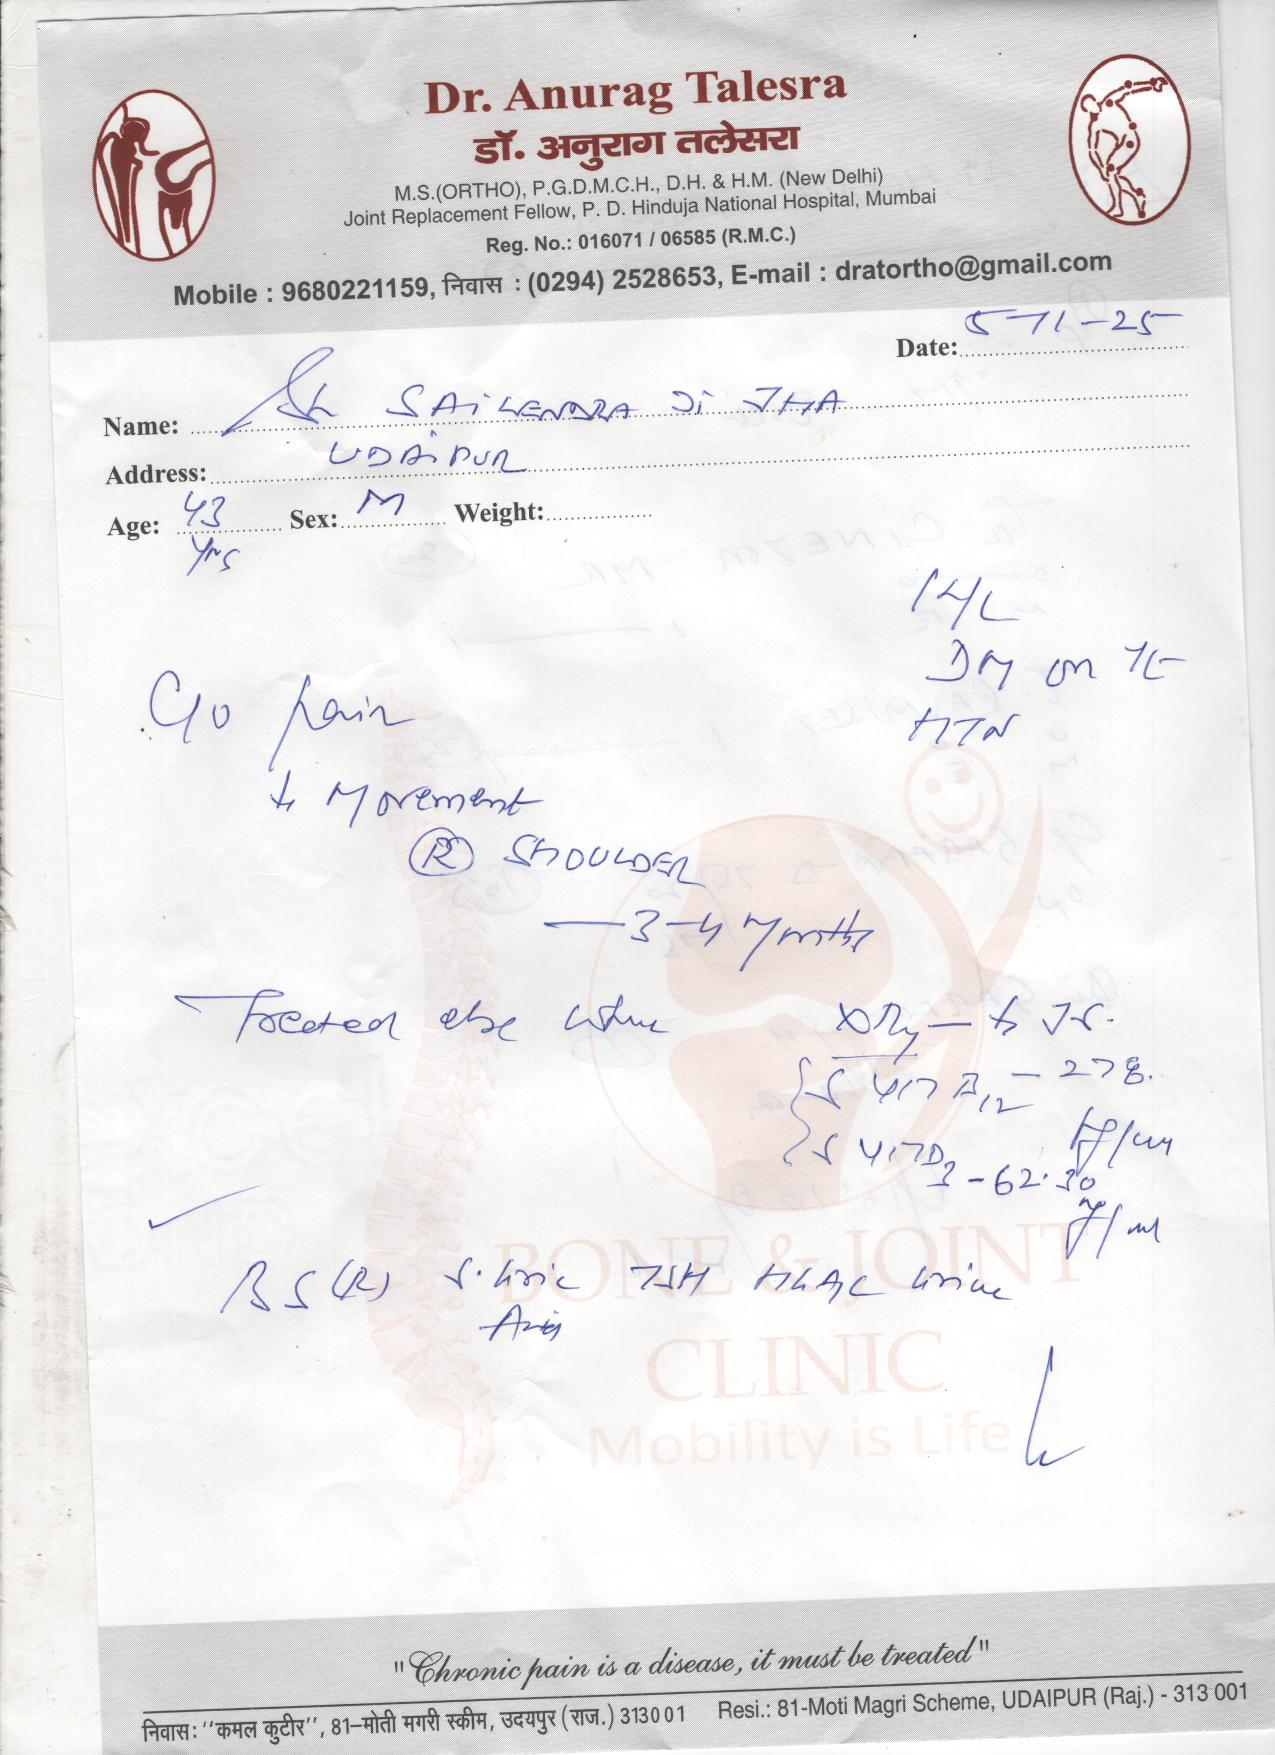 Dr. Anurag Talesra
डॉ. अनुराग तलेसरा
M.S.(ORTHO), P.G.D.M.C.H., D.H. & H.M. (New Delhi)
Joint Replacement Fellow, P. D. Hinduja National Hospital, Mumbai
Reg. No.: 016071 / 06585 (R.M.C.)
Mobile : 9680221159, निवास : (0294) 2528653, E-mail : dratortho@gmail.com
Date: 5-11-25
Name: Sh SAILENDRA Ji JHA
Address: UDAIPUR
Age: 43 Sex: M Weight:
yrs
DM on
HTN
C/o pain
Movement
R SHOULDER
3-4 Months
Treated else where
XRay
S VIT B12 - 278.
S VIT D3 - 62.30
BS (R) S. Uric TSH HbA1C Urine
Acid
BONE & JOINT
CLINIC
Mobility is Life
"Chronic pain is a disease, it must be treated"
निवास: "कमल कुटीर", 81–मोती मगरी स्कीम, उदयपुर (राज.) 313001 Resi.: 81-Moti Magri Scheme, UDAIPUR (Raj.) - 313 001